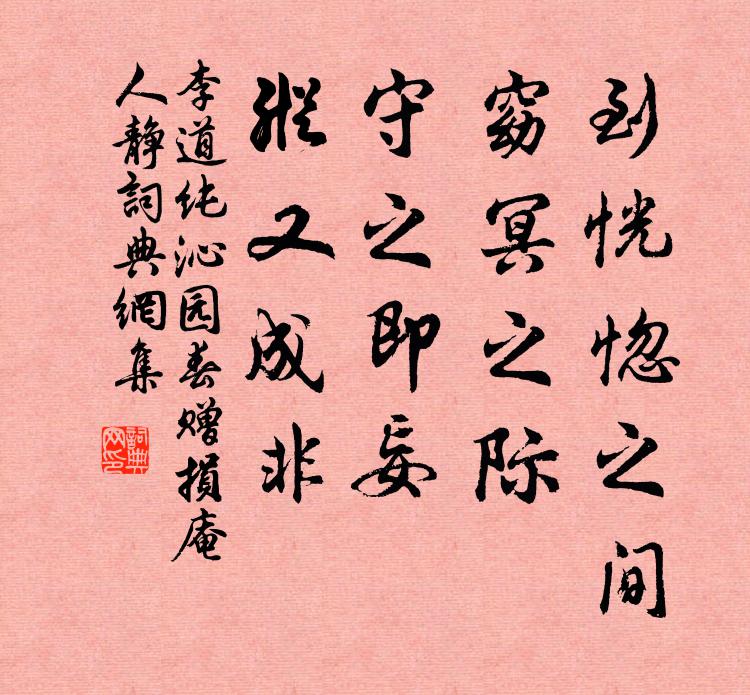 到恍惚之间
窈冥之际
守之即妄
縱又成非
李道纯沁园春赠損庵
人静詞典網集
詞典网印